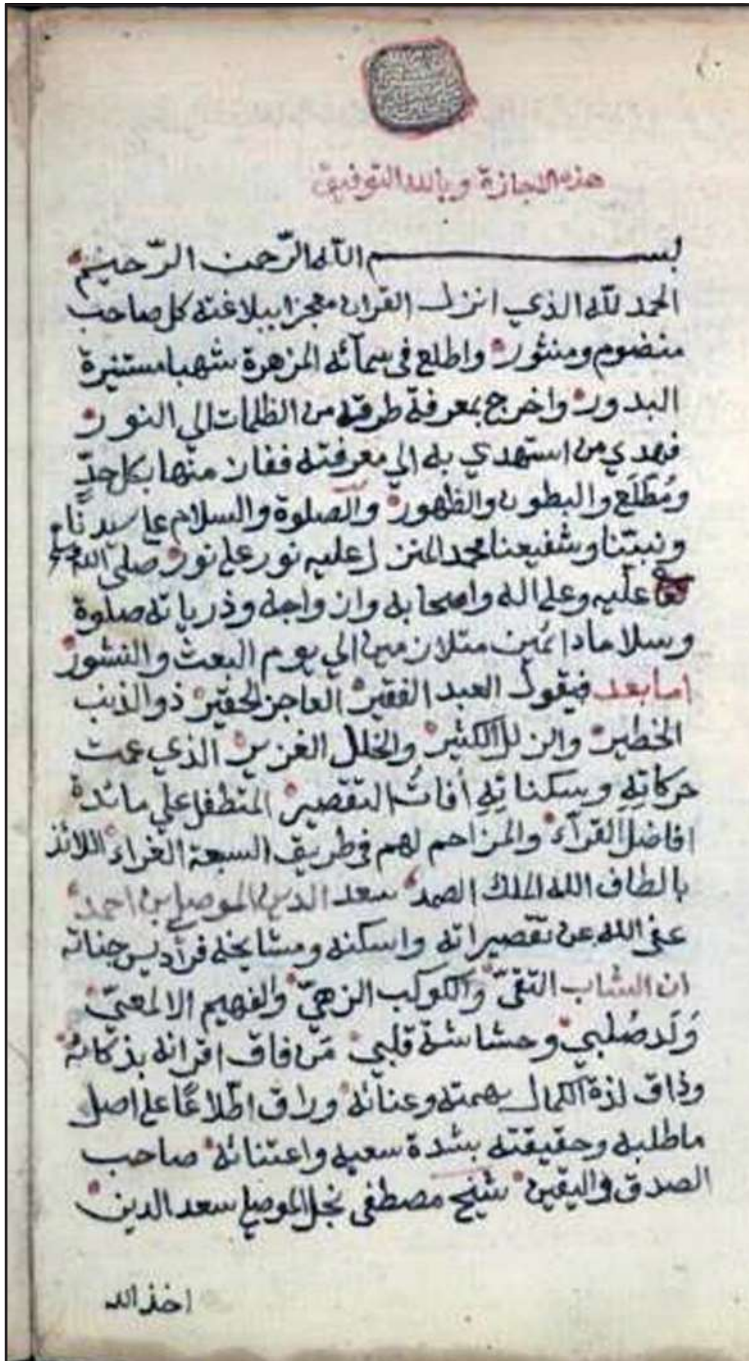 هذه الاجازة وبالله التوفيق
بسم الله الرّحمن الرّحيم
الحمد لله الذي انزل القران معجزا ببلاغته كل صاحب
منضوم ومنثور واطلع في سمآئه المزهرة شهبا مستنيرة
البدور واخرج بمعرفة طرقه من الظلمات الي النور
فهدي من استهدي به الي معرفته ففاز منها بكل حدّ
ومُطّلَع والبطون والظهور والصلوة والسلام على سيدنا
ونبيّنا وشفيعنا محمد المنزل عليه نور على نور صلى الله
عليه وعلى اله واصحابه وازواجه وذرياته صلوة
وسلاما دائمين متلازمين الي يوم البعث والنشور
اما بعد فيقول العبد الفقير العاجز الحقير ذو الذنب
الخطير والزلل الكثير والخلل الغزير الذي عمت
حركاتِهِ وسكناتِهِ أفاتُ التقصير المتطفل علي مائدة
افاضل القرآء والمزاحم لهم في طريق السبعة الغراء اللائذ
بالطاف الله الملك الصمد سعد الدين الموصلي بن احمد
عفى الله عن تقصيراته واسكنه ومشايخه فراديس جناته
ان الشاب التقيّ والكوكب الزهيّ والفهيم الالمعيّ
وَلَد صُلبي وحشاشة قلبي مَن فاق اقرانه بذكائه
وذاق لذة الكمال بهمته وعنائه وراق اطّلاعًا على اصل
ما طلبه وحقيقته بشدة سعيه واعتنائه صاحب
الصدق واليقين شيخ مصطفى نجل الموصلي سعد الدين
اخذ الد